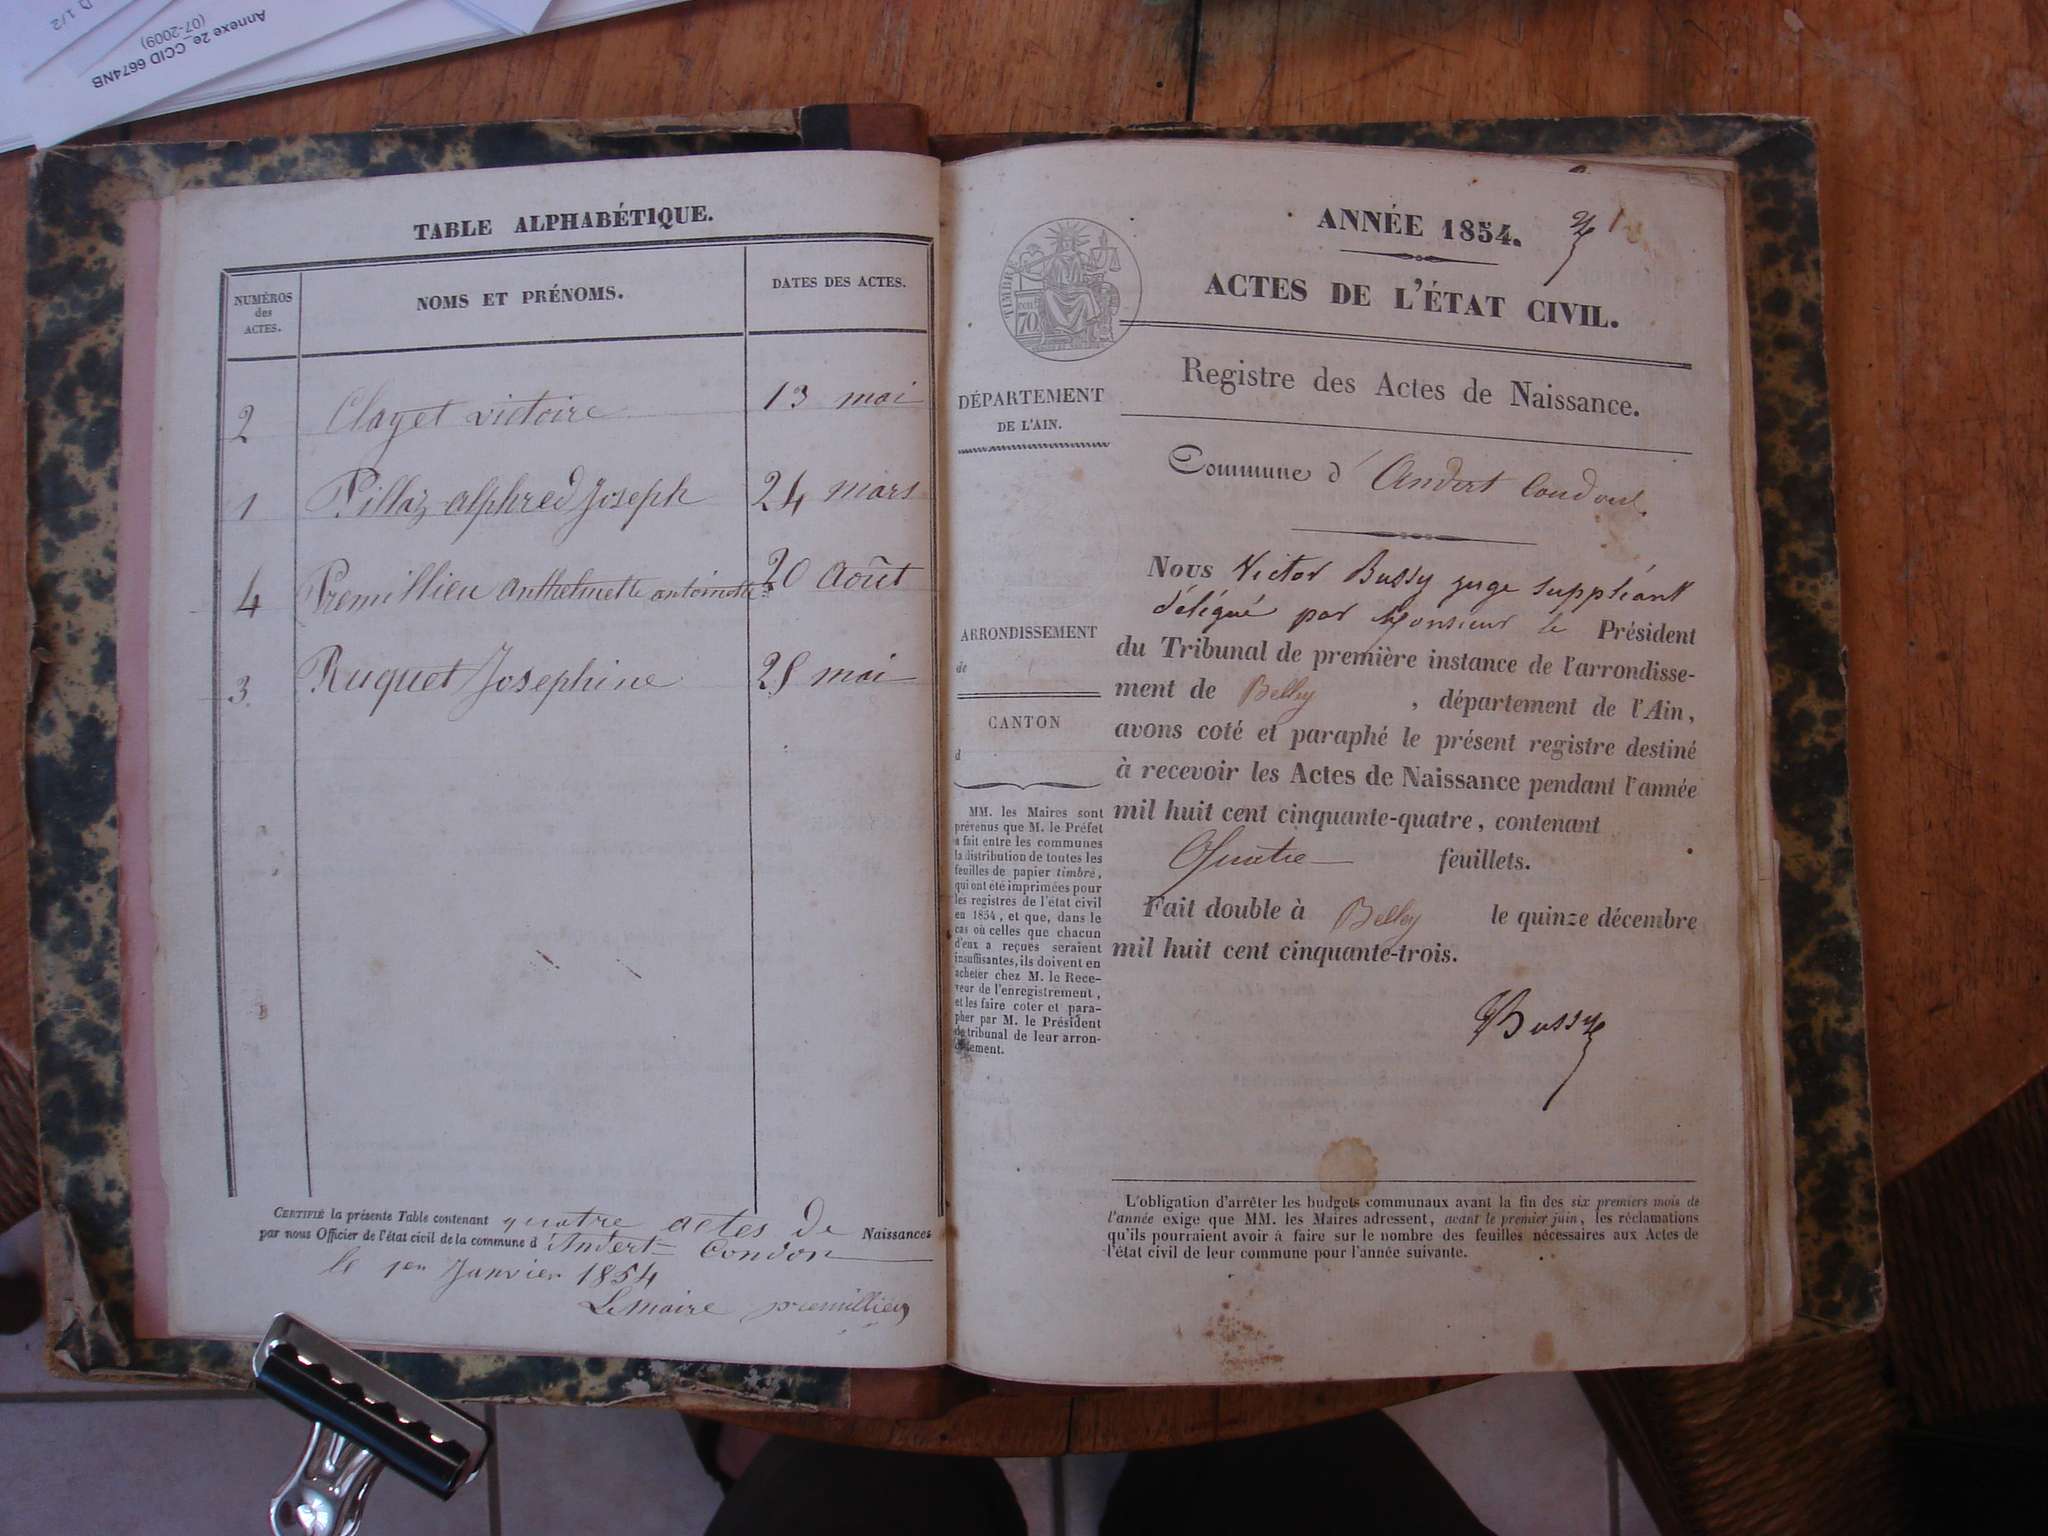 D 1/2
Annexe 2e_CCID 6674NB
(07-2009)
TABLE ALPHABÉTIQUE.
NUMÉROS des ACTES.
NOMS ET PRÉNOMS.
DATES DES ACTES.
2 Clayet victoire 13 mai
1 Pillaz alphred Joseph 24 mars
4 Premillieu anthelmette antoinette 20 Août
3 Ruquet Josephine 25 mai
CERTIFIÉ la présente Table contenant quatre actes de Naissances
par nous Officier de l'état civil de la commune d Andert Condon
le 1er Janvier 1854
Le maire premillieu
ANNÉE 1854.
ACTES DE L'ÉTAT CIVIL.
TIMBRE
70
DÉPARTEMENT
DE L'AIN.
ARRONDISSEMENT
de
CANTON
d
MM. les Maires sont
prévenus que M. le Préfet
a fait entre les communes
la distribution de toutes les
feuilles de papier timbré,
qui ont été imprimées pour
les registres de l'état civil
en 1854, et que, dans le
cas où celles que chacun
d'eux a reçues seraient
insuffisantes, ils doivent en
acheter chez M. le Rece-
veur de l'enregistrement,
et les faire coter et para-
pher par M. le Président
de tribunal de leur arron-
dissement.
Registre des Actes de Naissance.
Commune d'Andert Condon
Nous Victor Bussy juge suppléant
délégué par Monsieur le Président
du Tribunal de première instance de l'arrondisse-
ment de Belley , département de l'Ain,
avons coté et paraphé le présent registre destiné
à recevoir les Actes de Naissance pendant l'année
mil huit cent cinquante-quatre, contenant
Quatre feuillets.
Fait double à Belley le quinze décembre
mil huit cent cinquante-trois.
VBussy
L'obligation d'arrêter les budgets communaux avant la fin des six premiers mois de
l'année exige que MM. les Maires adressent, avant le premier juin, les réclamations
qu'ils pourraient avoir à faire sur le nombre des feuilles nécessaires aux Actes de
l'état civil de leur commune pour l'année suivante.